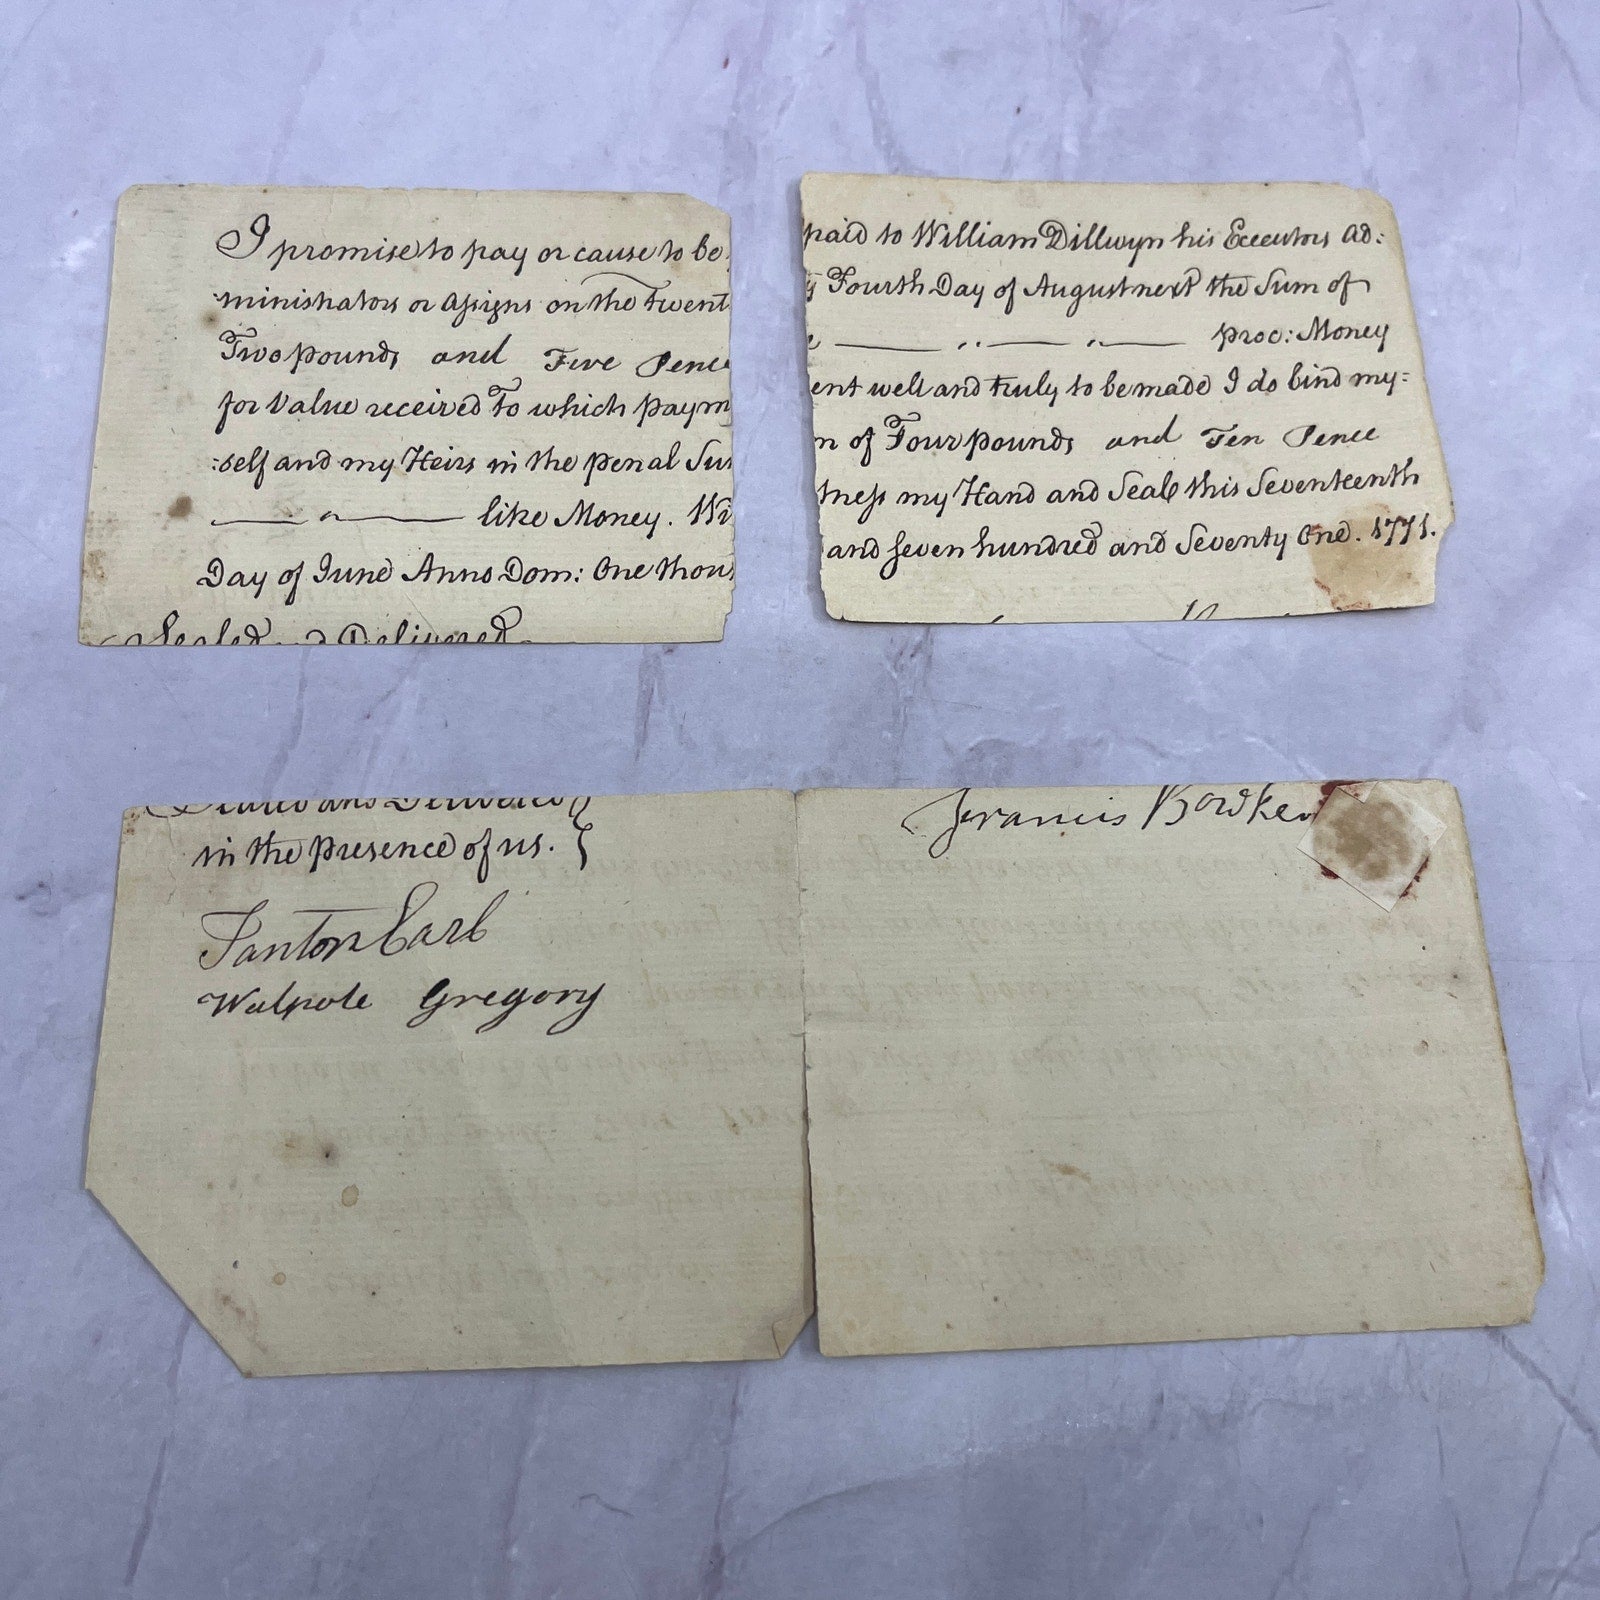 I promise to pay or cause to be
ministrators or Assigns on the Twent
Two pounds and Five Pence
for Value received To which paym
:self and my Heirs in the penal Sum
like Money. Wi
Day of June Anno Dom: One thou
Sealed and Delivered
paid to William Dillwyn his Executors Ad:
y Fourth Day of August next the Sum of
proc: Money
ent well and truly to be made I do bind my=
m of Four pounds and Ten Pence
tness my Hand and Seal this Seventeenth
and seven hundred and Seventy One. 1771.
Sealed and Delivered
in the presence of us.
Tanton Earl
Walpole Gregory
Francis Bowker